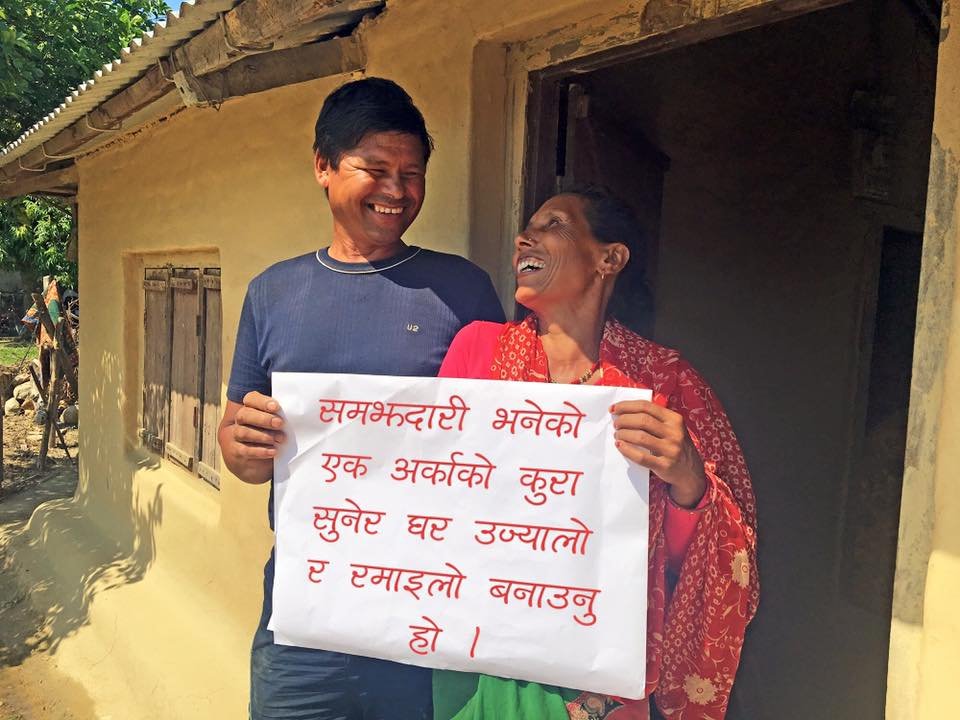 U2
समझदारी भनेको
एक अर्काको कुरा
सुनेर घर उज्यालो
र रमाइलो बनाउनु
हो ।